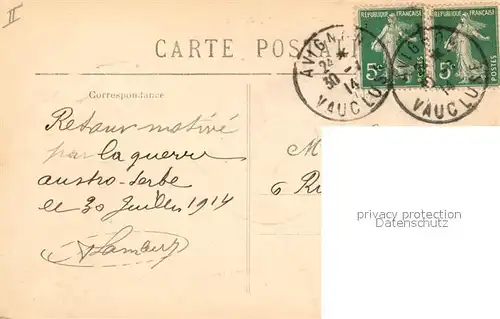 II
CARTE POSTALE
REPUBLIQUE FRANÇAISE
REPUBLIQUE FRANÇAISE
5c POSTES
5c POSTES
AVIGNON
24
30 -7
14
VAUCLUSE
AVIGNON
VAUCLUSE
Correspondance
Retour motivé
par la guerre
austro-serbe
le 30 Juillet 1914
M
6 Ru
privacy protection
Datenschutz